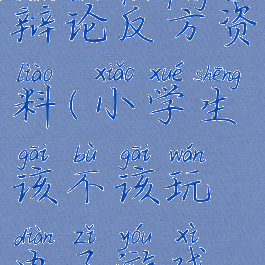 辩论反方资
liào xiǎo xué shēng
料(小学生
gāi bù gāi wán
该不该玩
diàn zǐ yóu xì
电子游戏